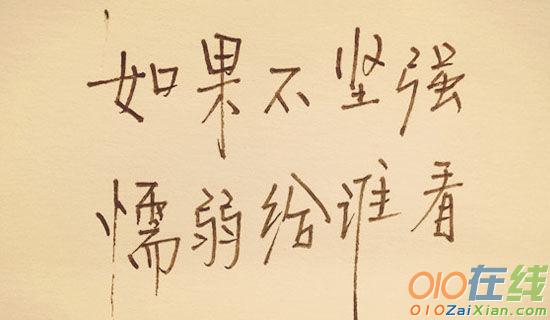 如果不坚强
懦弱给谁看
010在线
010ZaiXian.com